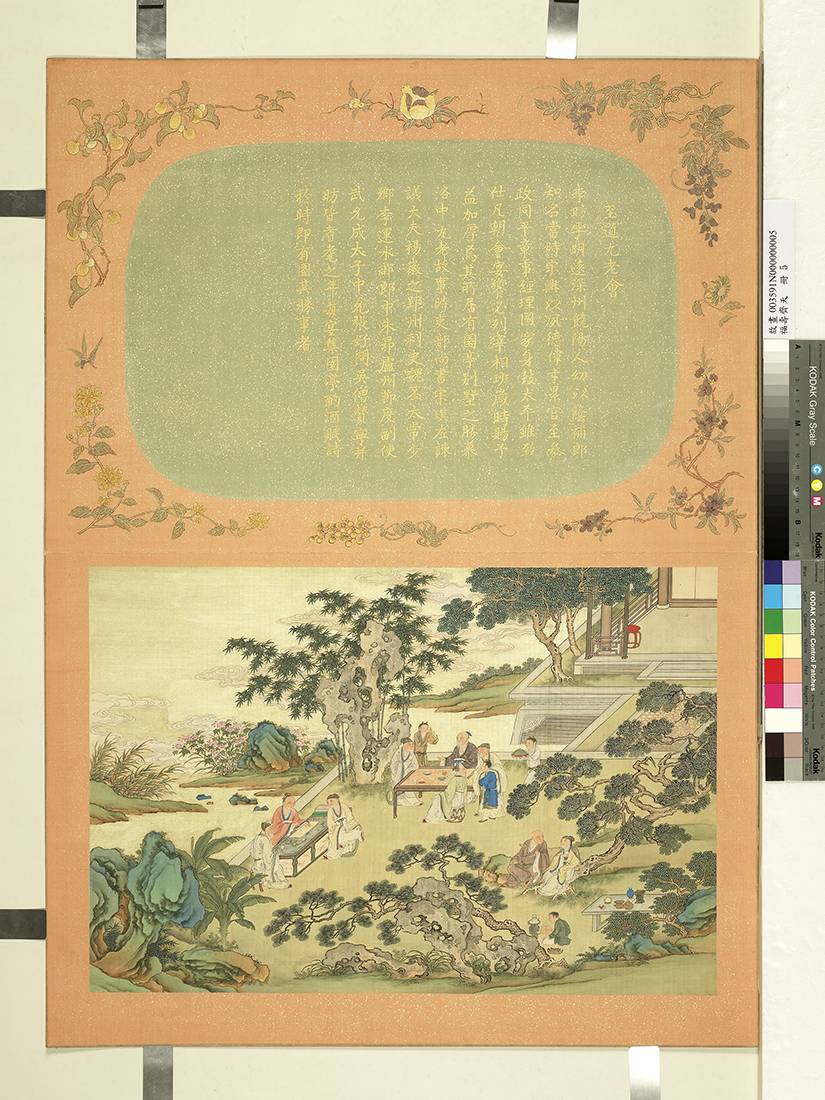 至道九老會
李昉字明遠深州饒陽人幼以蔭補郎
知名當時宋興以夙德偉才再至
政同平章事經理國家身致太平雖致
仕凡朝會宴饗必列宰相班歲時賜予
益加厚焉其所居有園亭別墅之勝慕
洛中九老故事時吏部尚書宋琪左諫
議大夫楊徽之郢州刺史魏丕太常少
卿李運水部郎中朱昂廬州節度副使
武允成太子中允張好問吳僧贊寧并
昉皆耆耄之年欲宴集園亭酌酒賦詩
於時即有圖其勝事者
故畫 003591N000000005
福壽齊天 冊 5
KODAK Gray Scale
A
M
B
C
Y
M
Kodak
KODAK Color Control Patches
Kodak